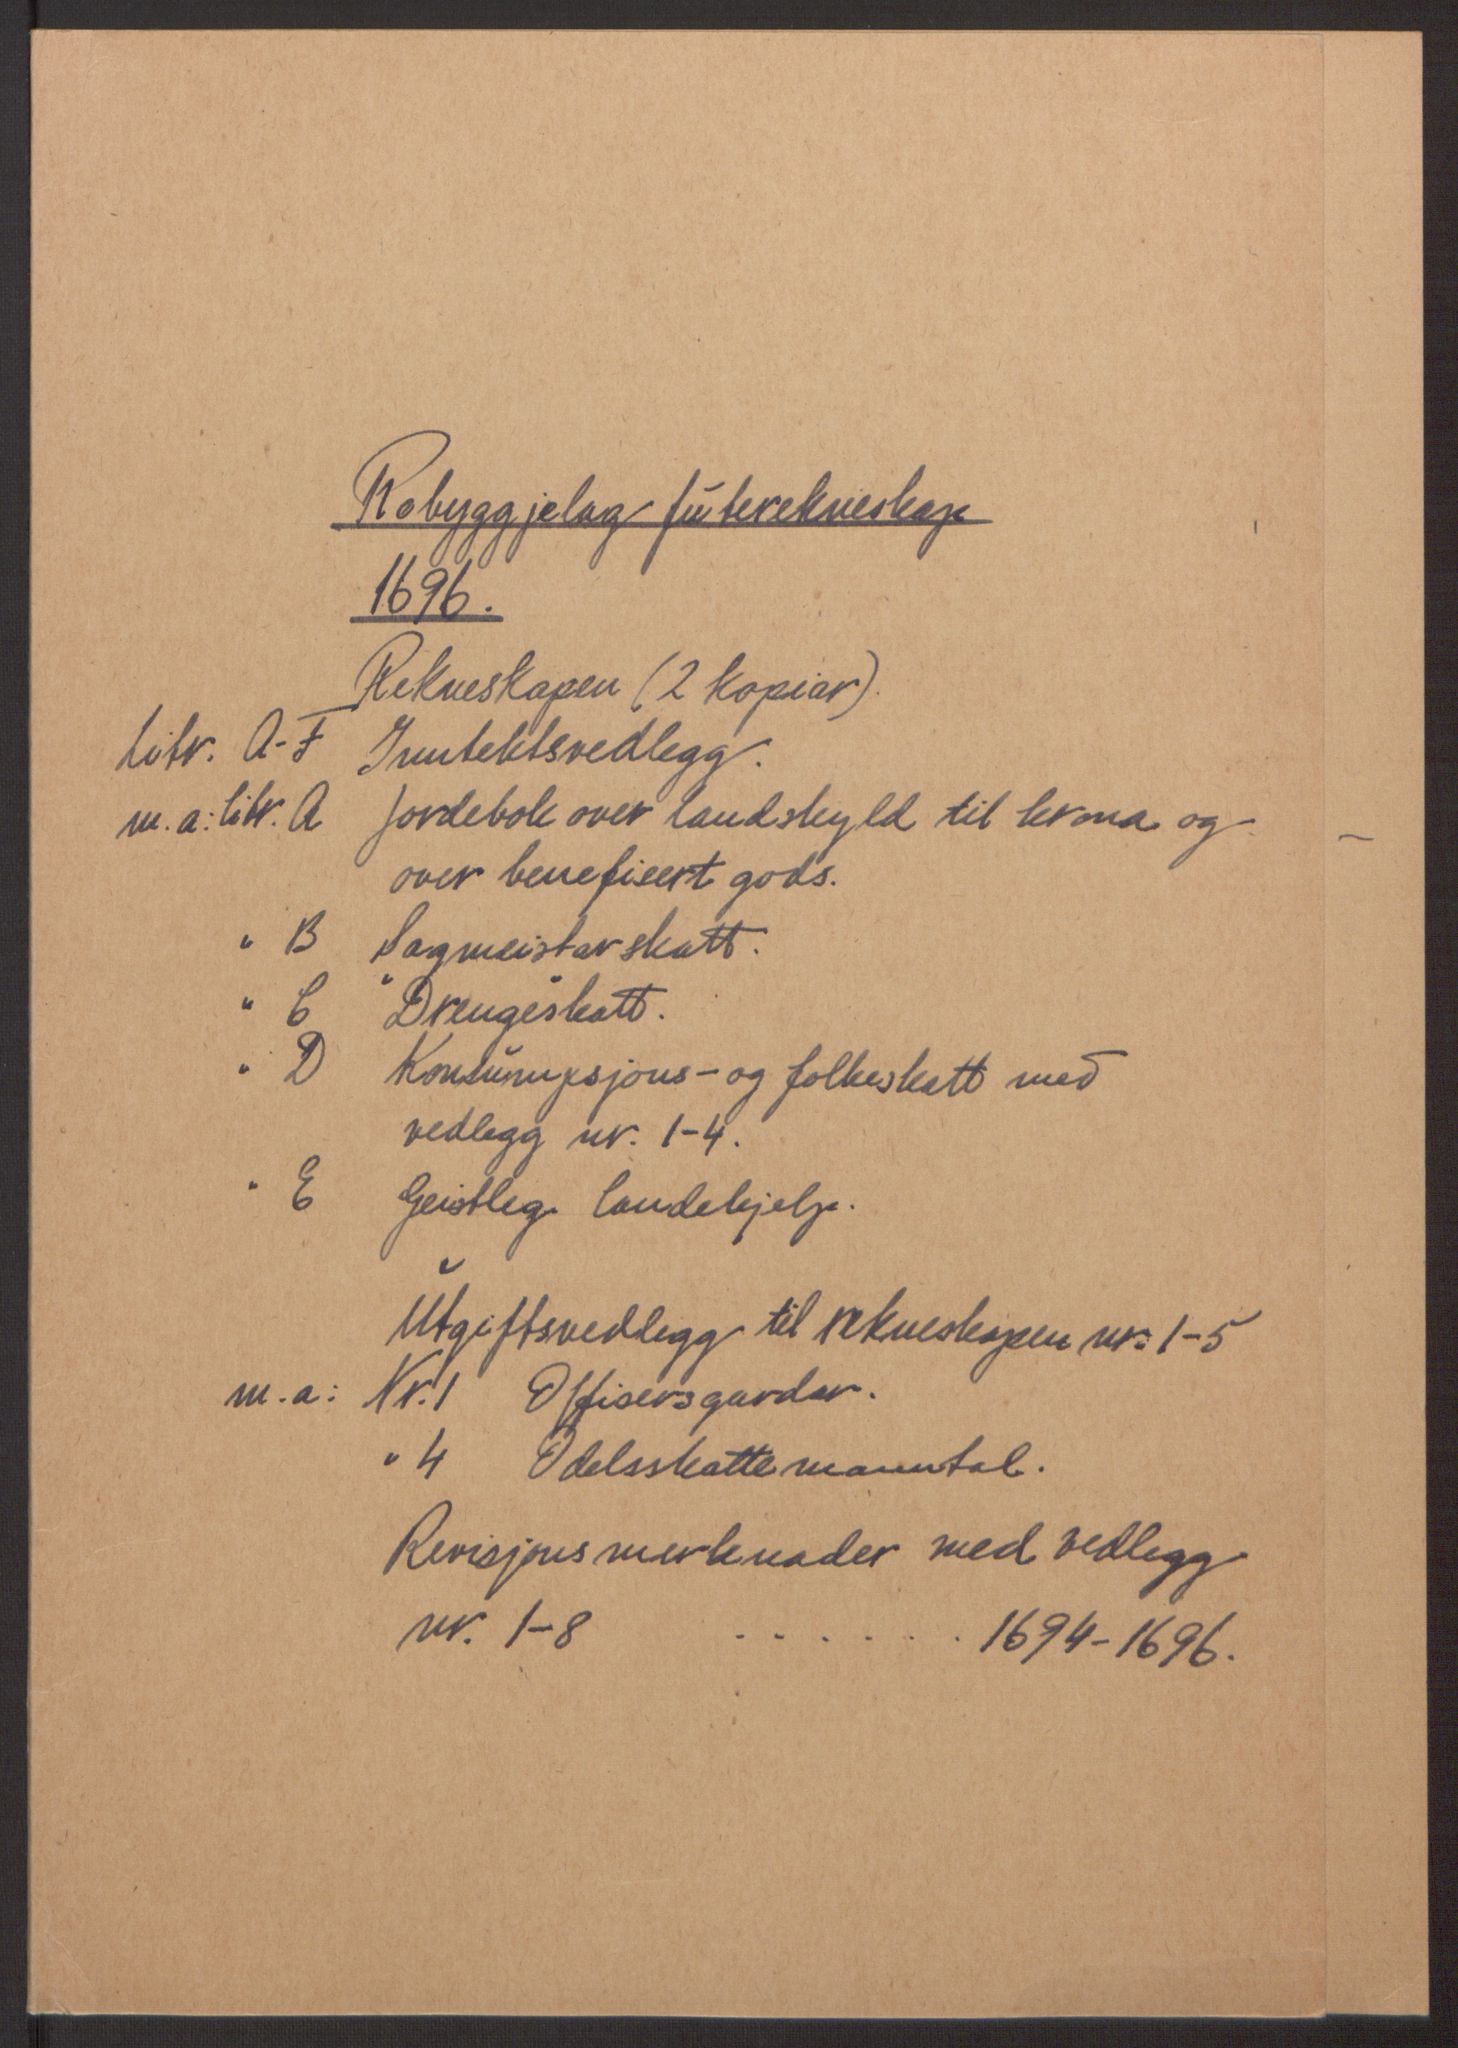 Robyggjelag futerekneskap
1696.
Rekneskapen (2 kopiar).
Litr. A-F Inntektsvedlegg.
m.a: litr. A Jordebok over landskyld til krona og
over benefisert gods.
" B Sagmeistarskatt.
" C Drengeskatt.
" D Konsumpsjons- og folkeskatt med
vedlegg nr. 1-4.
" E Geistleg landehjelp.
Utgiftsvedlegg til rekneskapen nr: 1-5
m.a: Nr. 1 Offisersgardar.
" 4 Odelsskattemanntal.
Revisjonsmerknader med vedlegg
nr. 1-8 ...... 1694-1696.